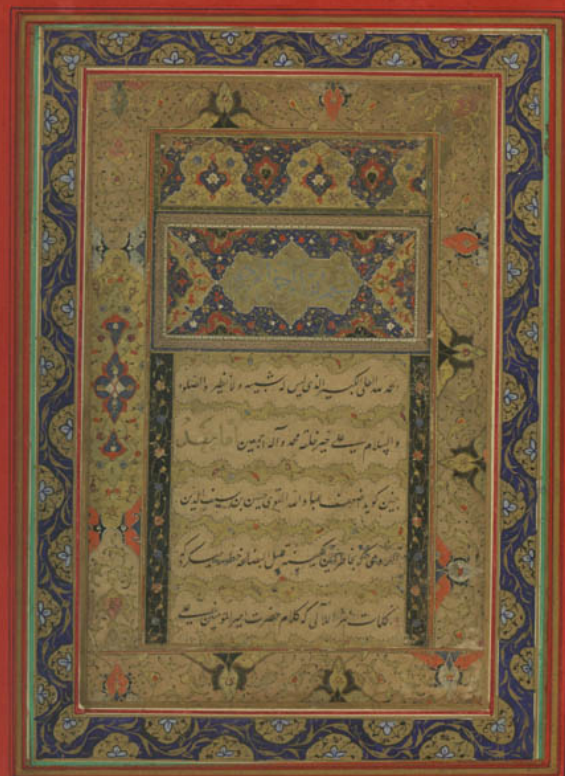 الحمد لله العلی الکبیر الذی لیس له شبیه و لا نظیر و الصلوة
والسلام علی خیر خلقه محمد و آله اجمعین اما بعد
چنین گوید ضعف عباد الله القوی حسن بن سیف الدین
که بخاطر این کمینه قلیل بضاعه خطور میکرد که
کلمات نثر اللآلی که کلام حضرت امیر المومنین علی